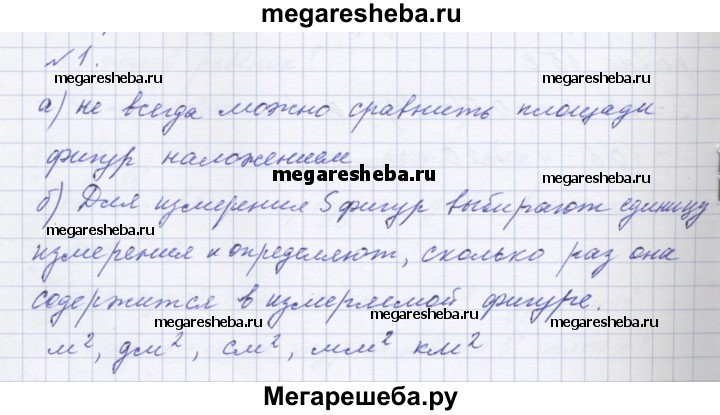 megaresheba.ru
№1.
megaresheba.ru megaresheba.ru
а) не всегда можно сравнить площади
фигур наложением
megaresheba.ru megaresheba.ru
б) Для измерения S фигур выбирают единицу
измерения и определяют, сколько раз она
содержится в измеряемой фигуре.
megaresheba.ru megaresheba.ru
м², дм², см², мм² км²
Мегарешеба.ру